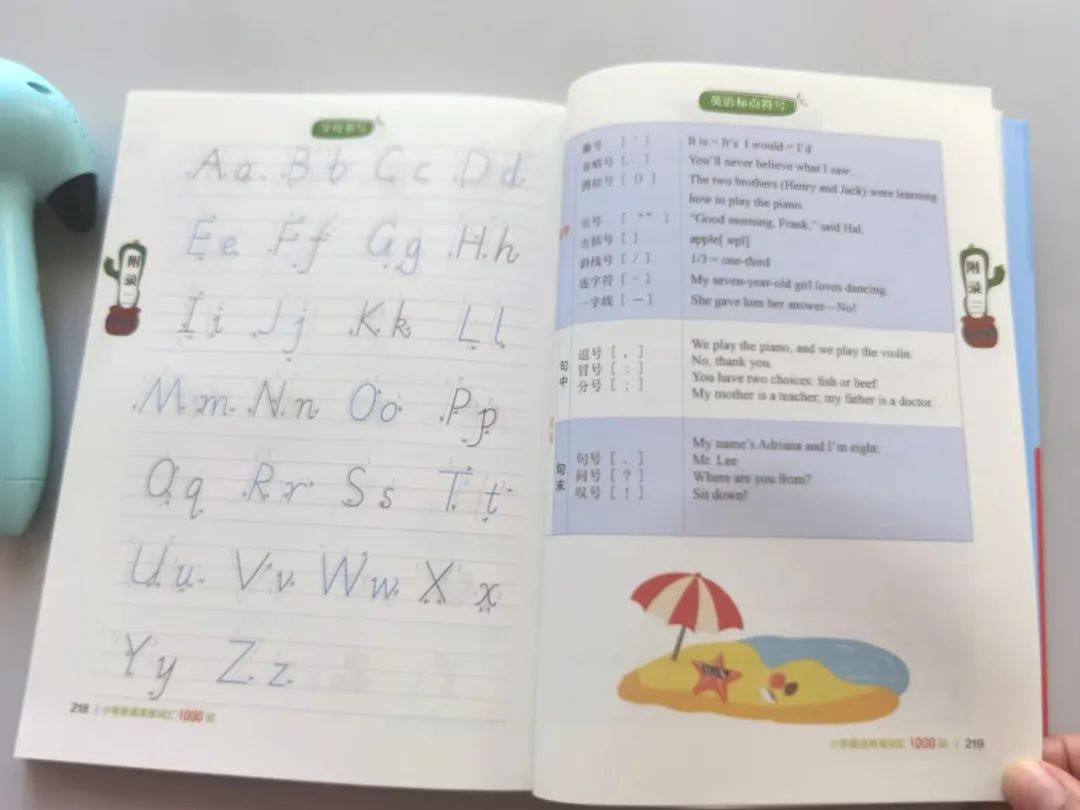 字母书写
Aa Bb Cc Dd
Ee Ff Gg Hh
Ii Jj Kk Ll
Mm Nn Oo Pp
Qq Rr Ss Tt
Uu Vv Ww Xx
Yy Zz
附录
218 | 小学英语高频词汇1000词
英语标点符号
撇号 [ ' ] It is = It's I would = I'd
省略号 [...] You'll never believe what I saw...
圆括号 [ () ] The two brothers (Henry and Jack) were learning
how to play the piano.
引号 [ “” ] “Good morning, Frank,” said Hal.
方括号 [ ] apple[ æpl]
斜线号 [ / ] 1/3 = one-third
连字符 [ - ] My seven-year-old girl loves dancing.
一字线 [ — ] She gave him her answer—No!
句中
逗号 [ , ] We play the piano, and we play the violin.
No, thank you.
冒号 [ : ] You have two choices: fish or beef.
分号 [ ; ] My mother is a teacher; my father is a doctor.
句末
My name's Adriana and I'm eight.
句号 [ . ] Mr. Lee
问号 [ ? ] Where are you from?
叹号 [ ! ] Sit down!
附录
小学英语高频词汇1000词 | 219